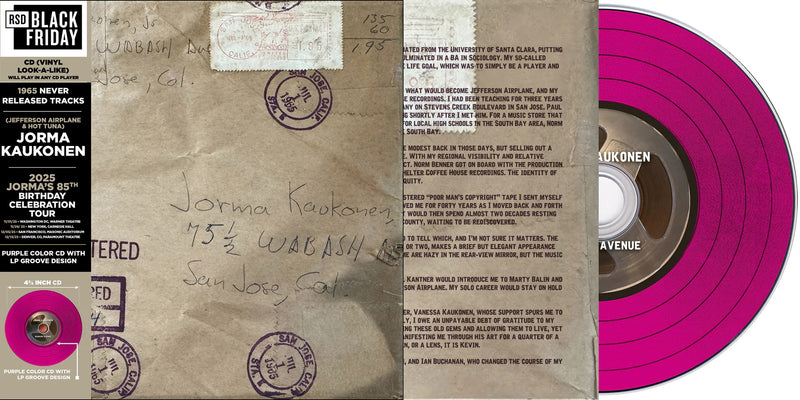 RSD BLACK
FRIDAY
CD (VINYL
LOOK-A-LIKE)
WILL PLAY IN ANY CD PLAYER
1965 NEVER
RELEASED TRACKS
(JEFFERSON AIRPLANE
& HOT TUNA)
JORMA
KAUKONEN
2025
JORMA'S 85TH
BIRTHDAY
CELEBRATION
TOUR
PURPLE COLOR CD WITH
LP GROOVE DESIGN
4¾ INCH CD
PURPLE COLOR CD WITH
LP GROOVE DESIGN
Wabash Ave
San Jose, Cal.
135
60
1.95
SAN JOSE, CALIF.
JUL
1
1965
STA.
Jorma Kaukonen
75 ½ WABASH AVE
San Jose, Cal.
TERED
RED
SAN JOSE, CALIF.
JUL
1
1965
SAN JOSE, CALIF.
JUL
1
1965
STA.
ATED FROM THE UNIVERSITY OF SANTA CLARA, PUTTING
ULMINATED IN A BA IN SOCIOLOGY. MY SO-CALLED
LIFE GOAL, WHICH WAS TO SIMPLY BE A PLAYER AND
WHAT WOULD BECOME JEFFERSON AIRPLANE, AND MY
E RECORDINGS. I HAD BEEN TEACHING FOR THREE YEARS
ANY ON STEVENS CREEK BOULEVARD IN SAN JOSE. PAUL
G SHORTLY AFTER I MET HIM. FOR A MUSIC STORE THAT
FOR LOCAL HIGH SCHOOLS IN THE SOUTH BAY AREA, NORM
SOUTH BAY.
E MODEST BACK IN THOSE DAYS, BUT SELLING OUT A
E. WITH MY REGIONAL VISIBILITY AND RELATIVE
CT. NORM BENNER GOT ON BOARD WITH THE PRODUCTION
HELTER COFFEE HOUSE RECORDINGS. THE IDENTITY OF
QUITY.
STERED "POOR MAN'S COPYRIGHT" TAPE I SENT MYSELF
VED ME FOR FORTY YEARS AS I MOVED BACK AND FORTH
WOULD THEN SPEND ALMOST TWO DECADES RESTING
COUNTY, WAITING TO BE REDISCOVERED.
D TO TELL WHICH, AND I'M NOT SURE IT MATTERS. THE
OR TWO, MAKES A BRIEF BUT ELEGANT APPEARANCE
E ARE HAZY IN THE REAR-VIEW MIRROR, BUT THE MUSIC
KANTNER WOULD INTRODUCE ME TO MARTY BALIN AND
SON AIRPLANE. MY SOLO CAREER WOULD STAY ON HOLD
ER, VANESSA KAUKONEN, WHOSE SUPPORT SPURS ME TO
LY, I OWE AN UNPAYABLE DEBT OF GRATITUDE TO MY
ING THESE OLD GEMS AND ALLOWING THEM TO LIVE, YET
ANIFESTING ME THROUGH HIS ART FOR A QUARTER OF A
N, OR A LENS, IT IS KEVIN.
, AND IAN BUCHANAN, WHO CHANGED THE COURSE OF MY
AUKONEN
AVENUE